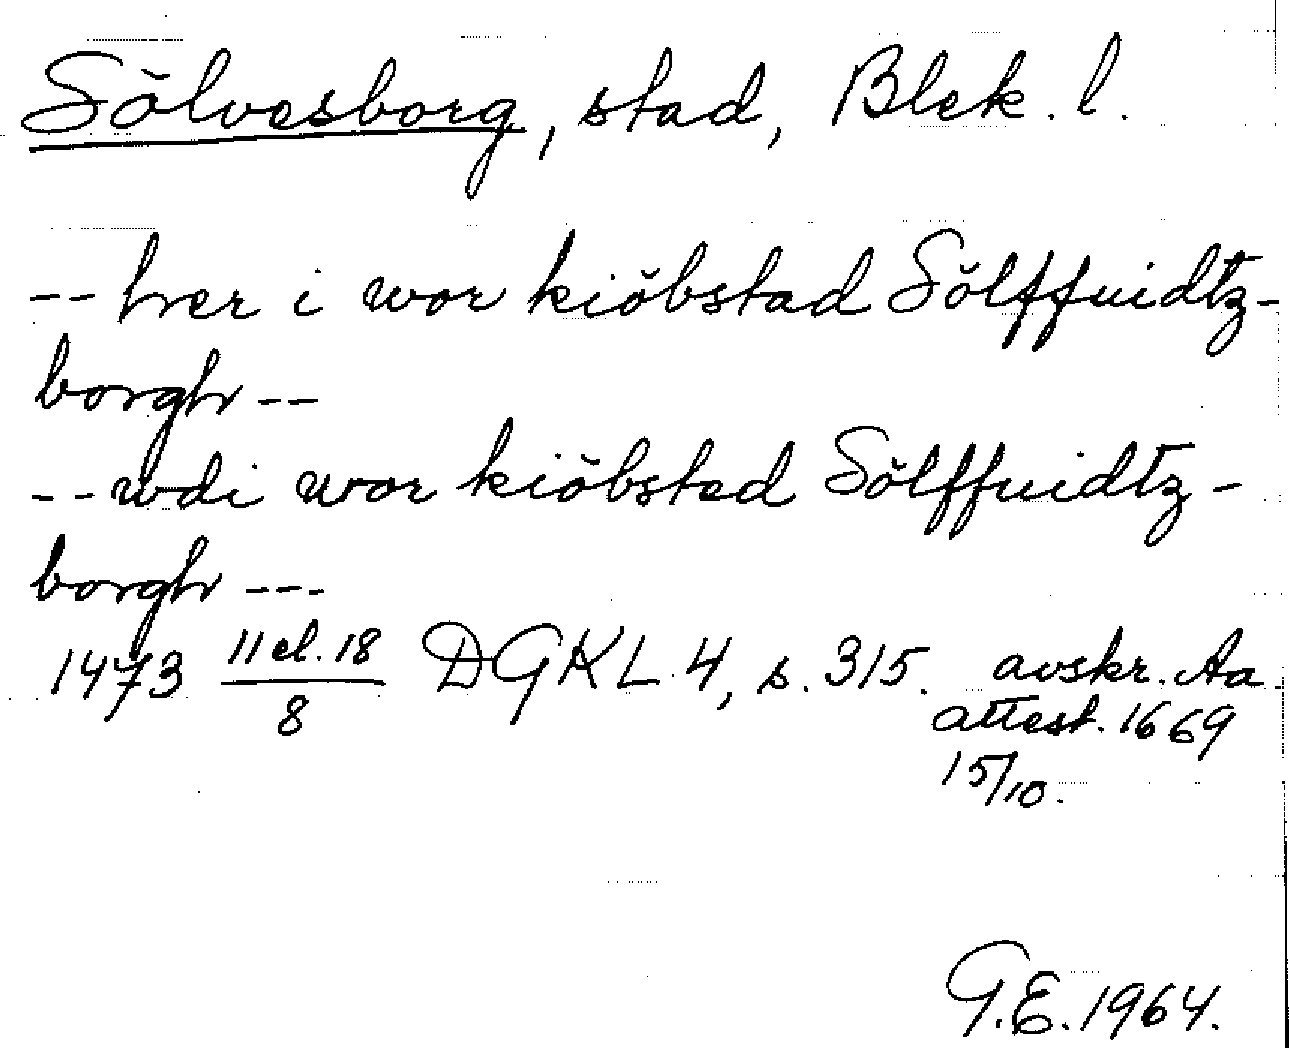 Sölvesborg, stad, Blek. l.
-- her i wor kiöbstad Sölffuidtz-
borgh --
-- wdi wor kiöbsted Sölffuidtz-
borgh ---
1473 11 el. 18/8 DGKL 4, s. 315. avskr. Aa
attest. 1669
15/10.
G.E. 1964.